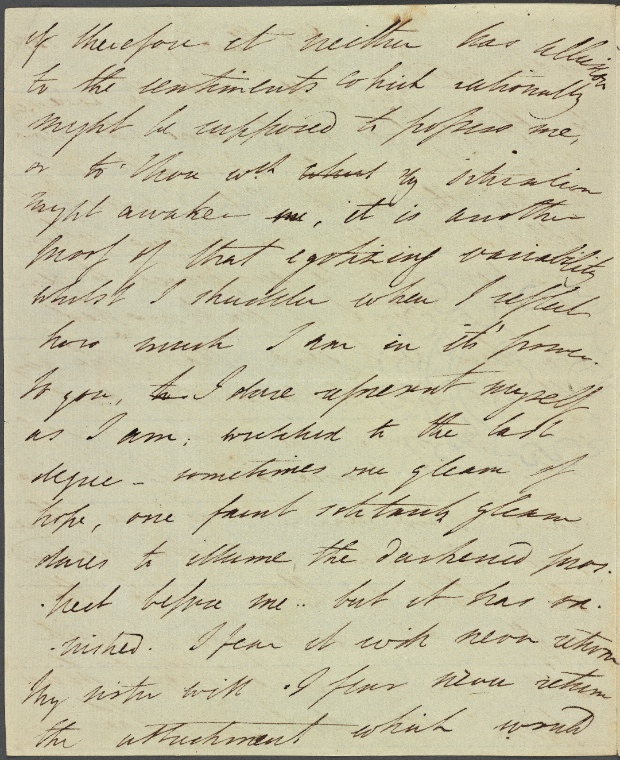 if therefore it neither has allusion
to the sentiments which rationally
might be supposed to possess me,
or to those wch what my situation
might awaken me, it is another
proof of that egotizing variability
whilst I shudder when I reflect
how much I am in its' power.
To you, to I dare represent myself
as I am: wretched to the last
degree – sometimes one gleam of
hope, one faint solitary gleam
dares to illume the darkened pros.
.pect before me .. but it has va.
.nished. I fear it will never return
My sister will . I fear never return
the attachment which would